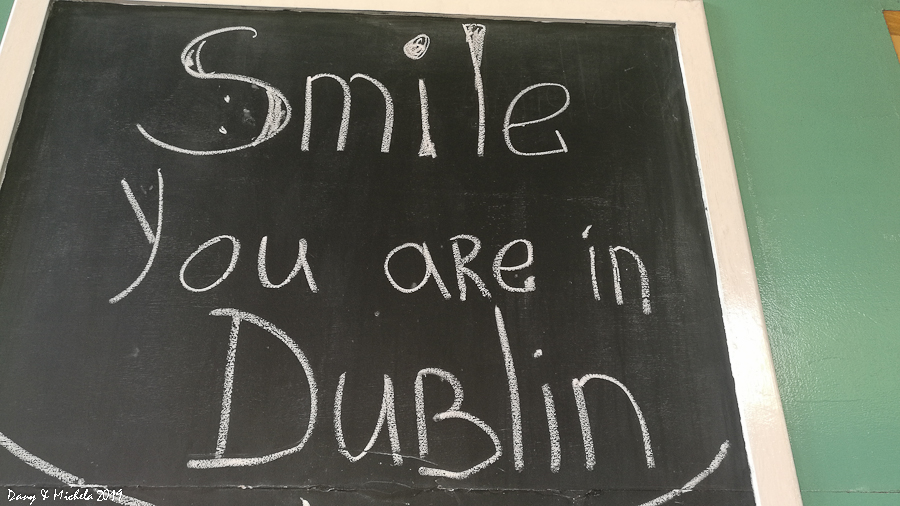 Smile
You are in
Dublin
Dany & Michela 2019